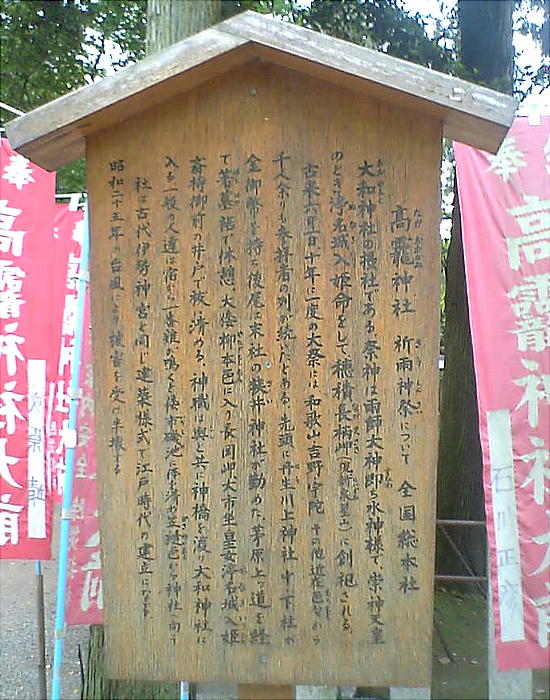 高龗神社 祈雨神祭について 全国総本社
大和神社の摂社である。祭神は雨師大神即ち水神様で、崇神天皇
のとき渟名城入姫命をして穂積長柄岬(現新泉星山)に創祀される。
古来六月一日、十年に一度の大祭には、和歌山、吉野、宇陀、その他近在邑々から
千人余りも奉持者の列が続いたとある。先頭に丹生川上神社、中、下社が
金御幣を持ち、後尾は末社の狭井神社が勤めた。茅原上ツ道を経
て箸墓陪で休憩、大倭柳本邑に入り長岡岬大市坐皇女渟名城入姫
斎持御前の井戸で祓い清める。神職神輿と共に神橋を渡り、大和神社に
入る。一般の人達は
社は古代伊勢神宮と同じ建築様式で江戸時代の建立になる。
昭和二十五年の台風により被害を受け半壊する
奉 高龗神社 大前
奉 高龗神社 大前
石川正彦